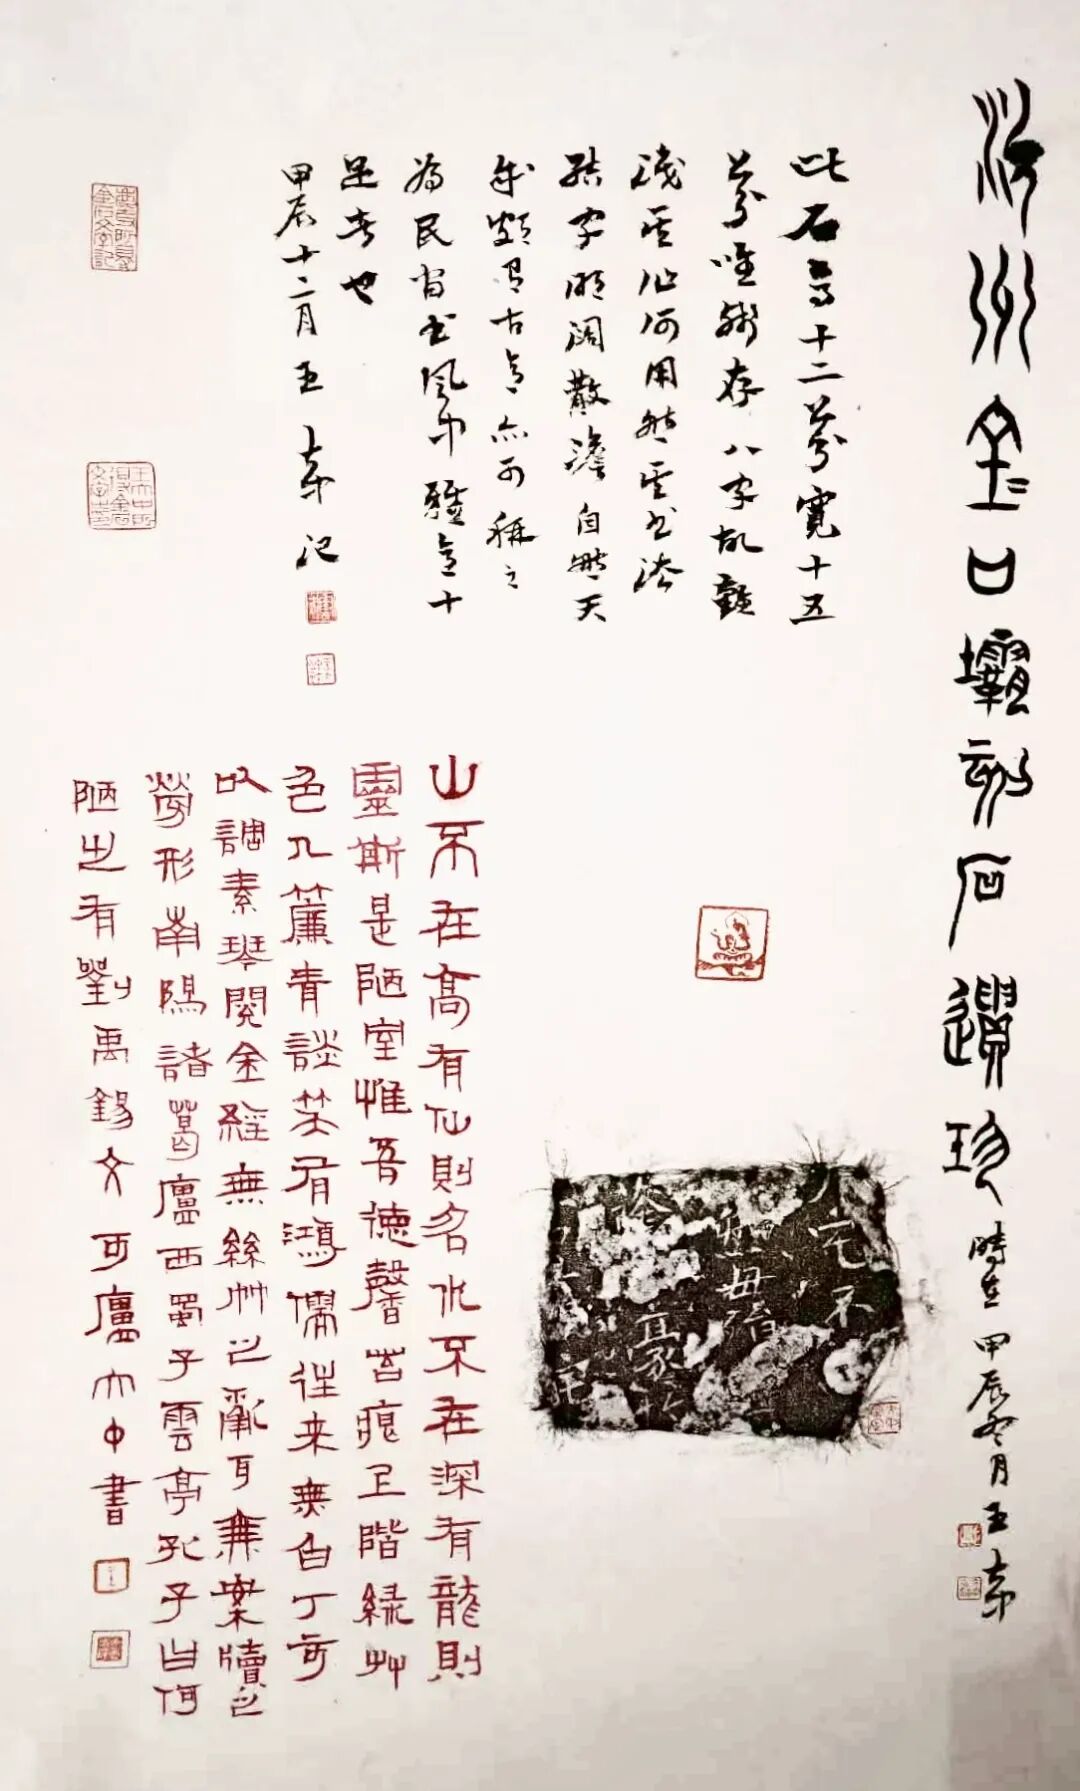 沇州金口壩刻石遺珍 時在甲辰冬月王
此石高十二公分寬十五
公分唯殘存八字故難
識其作何用然其書法
結字疏闊散澹自然天
成頗有古意亦可稱之
為民間書風中雅意十
足者也
甲辰十二月王 記
山不在高有仙則名水不在深有龍則
靈斯是陋室惟吾德馨苔痕上階綠艸
色入簾青談笑有鴻儒往来無白丁可
以調素琴閱金經無絲竹之亂耳無案牘之
勞形南陽諸葛廬西蜀子雲亭孔子曰何
陋之有劉禹錫文可廬大中書